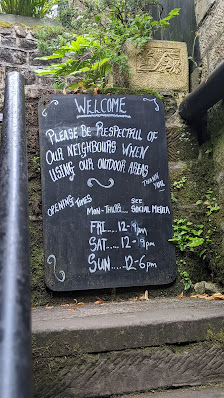 WELCOME
PLEASE BE RESPECTFUL OF
OUR NEIGHBOURS WHEN
USING OUR OUTDOOR AREAS
THANK
YOU
OPENING TIMES
MON-THURS... SEE SOCIAL MEDIA
FRI.....12-9pm
SAT.....12-9pm
SUN.....12-6pm